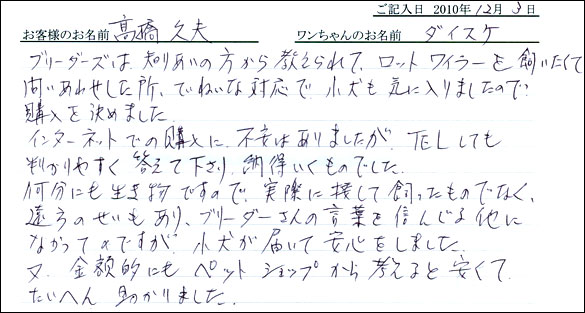 ご記入日 2010年12月3日
お客様のお名前 高橋久夫 ワンちゃんのお名前 ダイスケ
ブリーダーズは知りあいの方から教えられて、ロットワイラーを飼いたくて
問いあわせした所、ていねいな対応で小犬も気に入りましたので
購入を決めました
インターネットでの購入に不安はありましたが、TELしても
判かりやすく答えて下さり、納得いくものでした。
何分にも生き物ですので、実際に接して飼ったものでなく、
遠方のせいもあり、ブリーダーさんの言葉を信んじる他に
なかってのですが小犬が届いて安心をしました。
又、金額的にもペットショップから考えると安くて
たいへん助かりました。